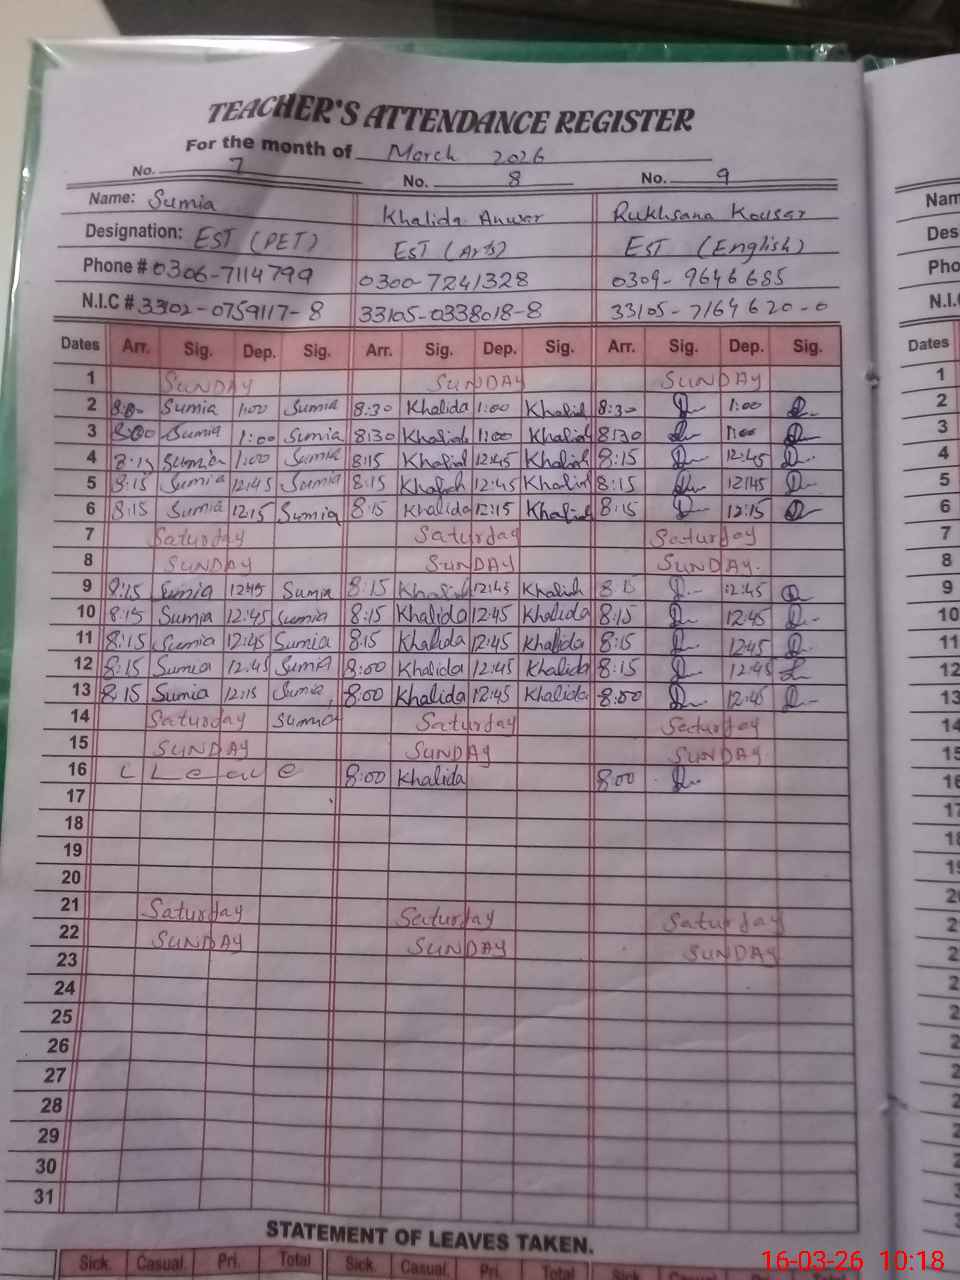 TEACHER'S ATTENDANCE REGISTER
For the month of March 2026
No. 7 No. 8 No. 9
Name: Sumia Khalida Anwar Rukhsana Kousar
Designation: EST (PET) EST (Arts) EST (English)
Phone # 0306-7114799 0300-7241328 0309-9646685
N.I.C # 33102-0759117-8 33105-0338018-8 33105-7164620-0
Dates Arr. Sig. Dep. Sig. Arr. Sig. Dep. Sig. Arr. Sig. Dep. Sig.
1 SUNDAY SUNDAY SUNDAY
2 Sumia 1:00 Sumia 8:30 Khalida 1:00 Khalid 8:30 1:00
3 8:00 Sumia 1:00 Sumia 8:30 Khalid 1:00 Khalid 8:30 1:00
4 8:15 Sumia 1:00 Sumia 8:15 Khalid 12:45 Khalid 8:15 12:45
5 8:15 Sumia 12:45 Sumia 8:15 Khalid 12:45 Khalid 8:15 12:45
6 8:15 Sumia 12:15 Sumia 8:15 Khalida 12:15 Khalid 8:15 12:15
7 Saturday Saturday Saturday
8 SUNDAY SUNDAY SUNDAY.
9 8:15 Sumia 12:45 Sumia 8:15 Khalid 12:45 Khalid 8:15 12:45
10 8:15 Sumia 12:45 Sumia 8:15 Khalida 12:45 Khalida 8:15 12:45
11 8:15 Sumia 12:45 Sumia 8:15 Khalida 12:45 Khalida 8:15 12:45
12 8:15 Sumia 12:45 Sumia 8:00 Khalida 12:45 Khalida 8:15 12:45
13 8:15 Sumia 12:15 Sumia 8:00 Khalida 12:45 Khalida 8:00 12:45
14 Saturday Sumia Saturday Saturday
15 SUNDAY SUNDAY SUNDAY
16 C Leave 8:00 Khalida 8:00
17
18
19
20
21 Saturday Saturday Saturday
22 SUNDAY SUNDAY SUNDAY
23
24
25
26
27
28
29
30
31
STATEMENT OF LEAVES TAKEN.
Sick. Casual. Pri. Total Sick. Casual. Pri. Total Sick. Casual. Pri. Total
Nam
Des
Pho
N.I.
Dates
1
2
3
4
5
6
7
8
9
10
11
12
13
14
15
16
17
16-03-26 10:18